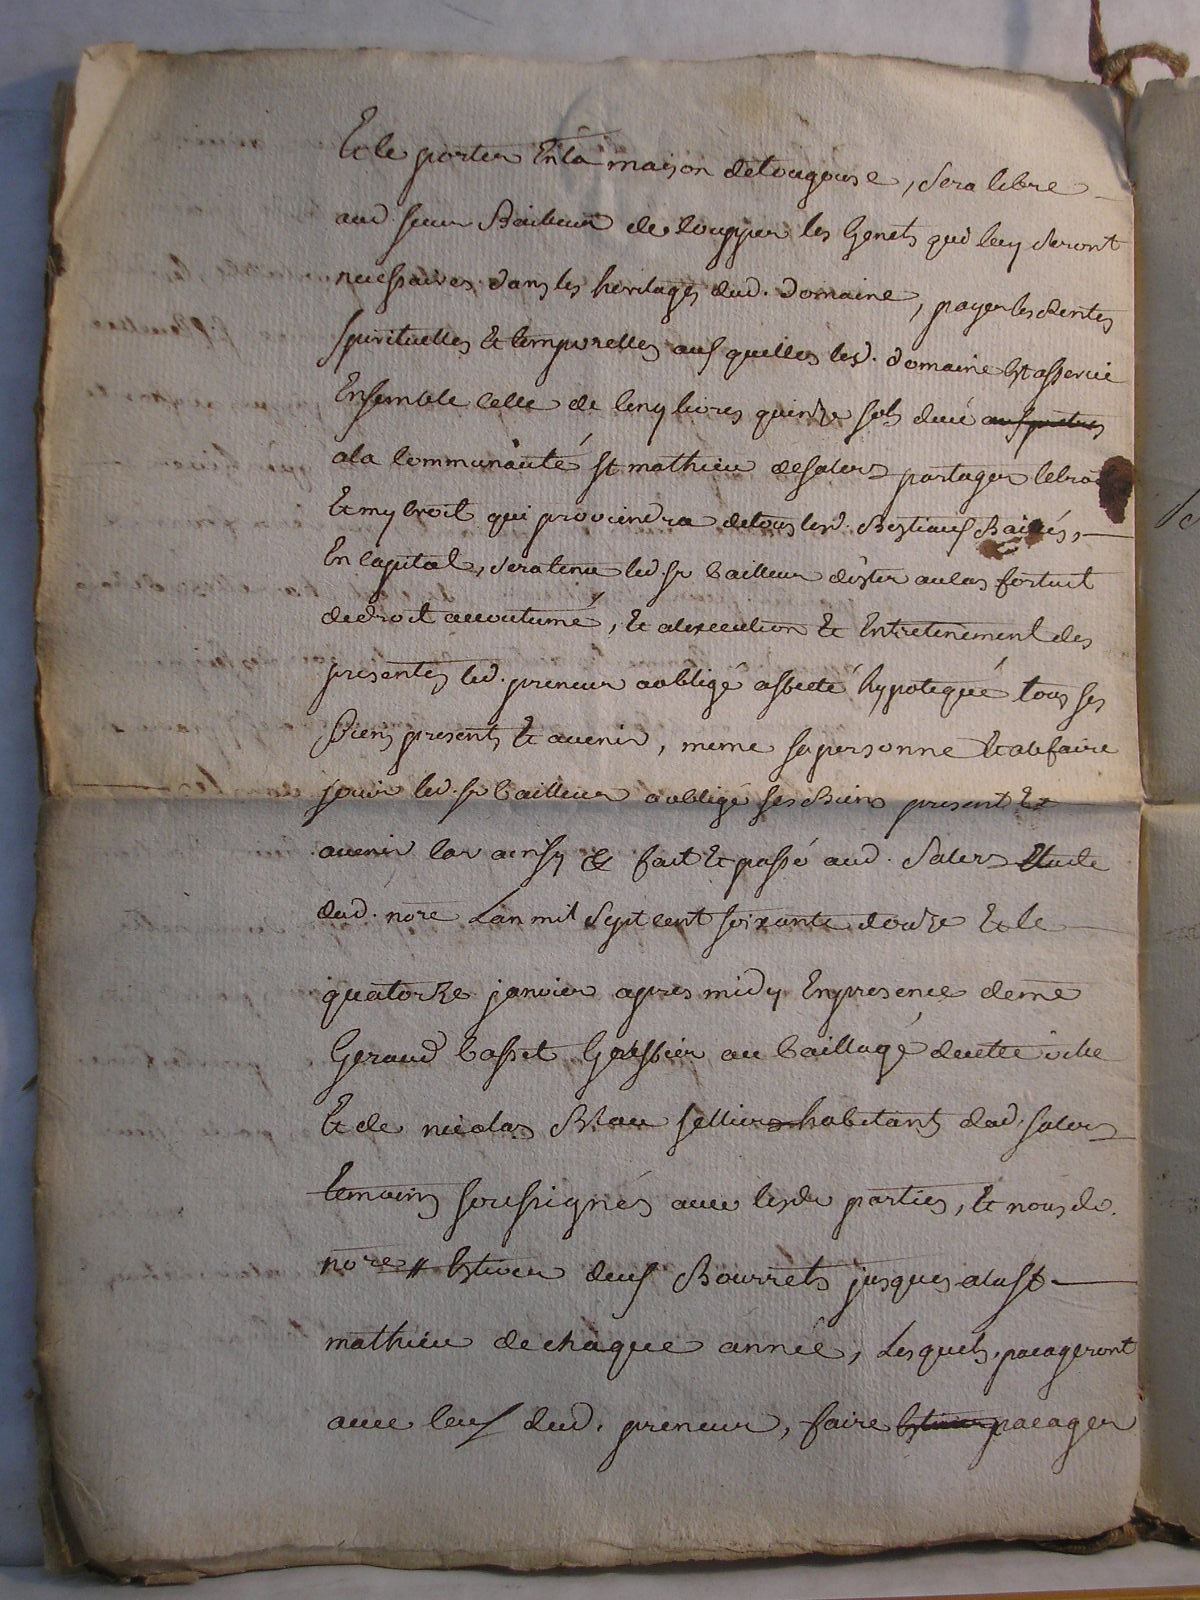 Et le porter En la maison detougouse, sera libre
aud. sieur Bailleur de Coupper les Genets qui luy seront
necessaires dans les heritages dud. Domaine, payer les Rentes
spirituelles Et temporelles ausquelles led. domaine Est asservie
Ensemble Celle de Cinq livres quinze sols deue aus pretres
a la Communauté st mathieu de salers partager le croit
Et my croit qui proviendra de tous lesd. Bestiaux Baillés,
En Capital, sera tenu led. sr Bailleur d'ester au Cas fortuit
de droit accoutumé, Et a l'execution Et Entretenement des
presentes led. preneur a obligé affecté hypotequé tous ses
Biens presents Et avenir, meme sa personne Et a le faire
jouir led. sr Bailleur a obligé ses Biens present Et
avenir Car ainsy & fait Et passé aud. Salers Etude
dud. nore Lan mil Sept cent soixante douze Et le
quatorze janvier apres midy En presence de me
Geraud Basset Greffier au Baillage de cette ville
Et de nicolas Briau sellier habitants dud. salers
temoins soussignés avec lesd. parties, Et nous d.
nore // Estiver deux Bourrets jusques a la st
mathieu de chaque année, Lesquels pacageront
avec Ceux dud. preneur, faire Estiver pacager